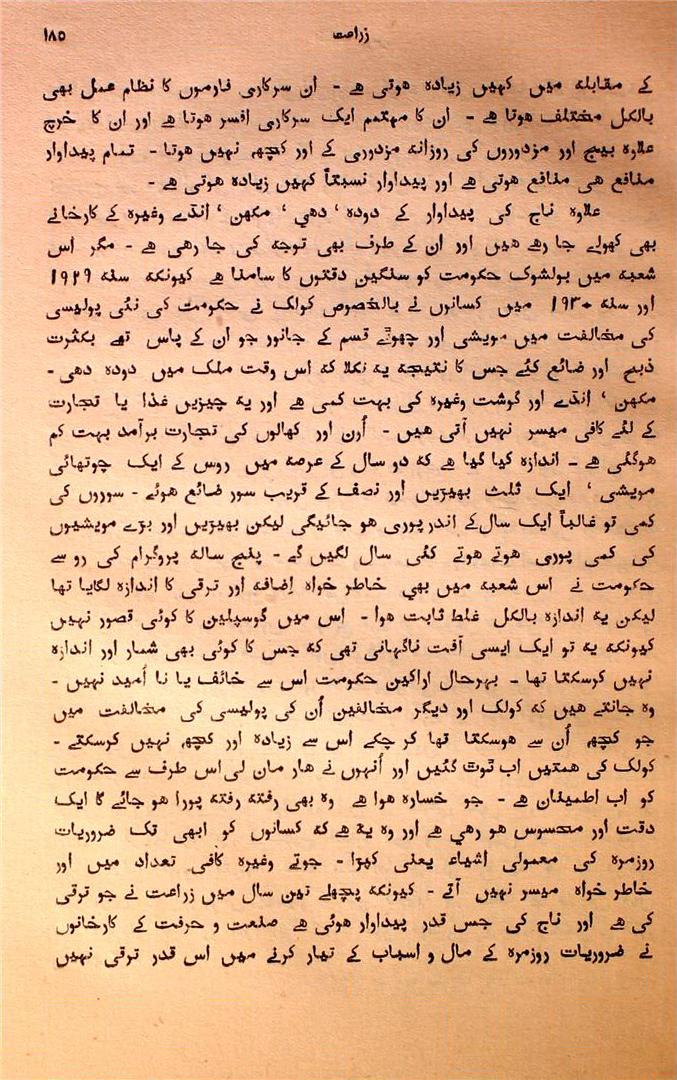 زراعت ۱۸۵
کے مقابلہ میں کہیں زیادہ ہوتی ہے - ان سرکاری فارموں کا نظام عمل بھی
بالکل مختلف ہوتا ہے - ان کا مہتمم ایک سرکاری افسر ہوتا ہے اور ان کا خرچ
علاوہ بیج اور مزدوروں کی روزانہ مزدوری کے اور کچھہ نہیں ہوتا - تمام پیداوار
منافع ھی منافع ہوتی ہے اور پیداوار نسبتاً کہیں زیادہ ہوتی ہے -
علاوہ ناج کی پیداوار کے دودہ ' دھی ' مکھن ' انڈے وغیرہ کے کارخانے
بھی کھولے جا رہے ہیں اور ان کے طرف بھی توجہ کی جا رہی ہے - مگر اس
شعبہ میں بولشوک حکومت کو سنگین دقتوں کا سامنا ہے کیونکہ سنہ ۱۹۲۹
اور سنہ ۱۹۳۰ میں کسانوں نے بالخصوص کولک نے حکومت کی نئی پولیسی
کی مخالفت میں مویشی اور چھوٹے قسم کے جانور جو ان کے پاس تھے بکثرت
ذبح اور ضائع کئے جس کا نتیجہ یہ نکلا کہ اس وقت ملک میں دودہ دھی -
مکھن ' انڈے اور گوشت وغیرہ کی بہت کمی ہے اور یہ چیزیں غذا یا تجارت
کے لئے کافی میسر نہیں آتی ہیں - اُون اور کھالوں کی تجارت برآمد بہت کم
ہوگئی ہے - اندازہ کیا گیا ہے کہ دو سال کے عرصہ میں روس کے ایک چوتھائی
مویشی ' ایک ثلث بھیڑیں اور نصف کے قریب سور ضائع ہوئے - سوروں کی
کمی تو غالباً ایک سال کے اندر پوری ہو جائیگی لیکن بھیڑیں اور بڑے مویشیوں
کی کمی پوری ہوتے ہوتے کئی سال لگیں گے - پنج سالہ پروگرام کی رو سے
حکومت نے اس شعبہ میں بھی خاطر خواہ اِضافہ اور ترقی کا اندازہ لگایا تھا
لیکن یہ اندازہ بالکل غلط ثابت ہوا - اس میں گوسپلین کا کوئی قصور نہیں
کیونکہ یہ تو ایک ایسی آفت ناگہانی تھی کہ جس کا کوئی بھی شمار اور اندازہ
نہیں کرسکتا تھا - بہرحال اراکین حکومت اس سے خائف یا نا اُمید نہیں -
وہ جانتے ہیں کہ کولک اور دیگر مخالفین اُن کی پولیسی کی مخالفت میں
جو کچھہ اُن سے ہوسکتا تھا کر چکے اس سے زیادہ اور کچھہ نہیں کرسکتے -
کولک کی ہمتیں اب ٹوٹ گئیں اور اُنہوں نے ہار مان لی اس طرف سے حکومت
کو اب اطمینان ہے - جو خسارہ ہوا ہے وہ بھی رفتہ رفتہ پورا ہو جائے گا ایک
دقت اور محسوس ہو رہی ہے اور وہ یہ ہے کہ کسانوں کو ابھی تک ضروریات
روزمرہ کی معمولی اشیاء یعنی کپڑا - جوتے وغیرہ کافی تعداد میں اور
خاطر خواہ میسر نہیں آتے - کیونکہ پچھلے تین سال میں زراعت نے جو ترقی
کی ہے اور ناج کی جس قدر پیداوار ہوئی ہے صنعت و حرفت کے کارخانوں
نے ضروریات روزمرہ کے مال و اسباب کے تیار کرنے میں اس قدر ترقی نہیں